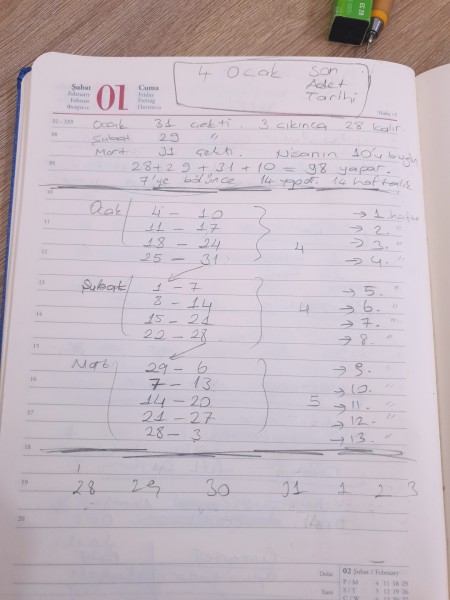 4 Ocak Son
Adet
Tarihi
Şubat
February
Februar
01
Cuma
Friday
Freitag
Ocak 31 çekti. 3 çıkınca 28 kalır.
Şubat 29 "
Mart 31 çekti. Nisanın 10'u bugün
28+29+31+10 = 98 yapar.
7'ye bölünce 14 yapar. 14 haftalık
Ocak 4 - 10 → 1. hafta
11 - 17 → 2. "
18 - 24 4 → 3. "
25 - 31 → 4. "
Şubat 1 - 7 → 5. "
8 - 14 4 → 6. "
15 - 21 → 7. "
22 - 28 → 8. "
Mart 29 - 6 → 9. "
7 - 13 → 10. "
14 - 20 5 → 11. "
21 - 27 → 12. "
28 - 3 → 13. "
28 29 30 31 1 2 3
02 Şubat / February